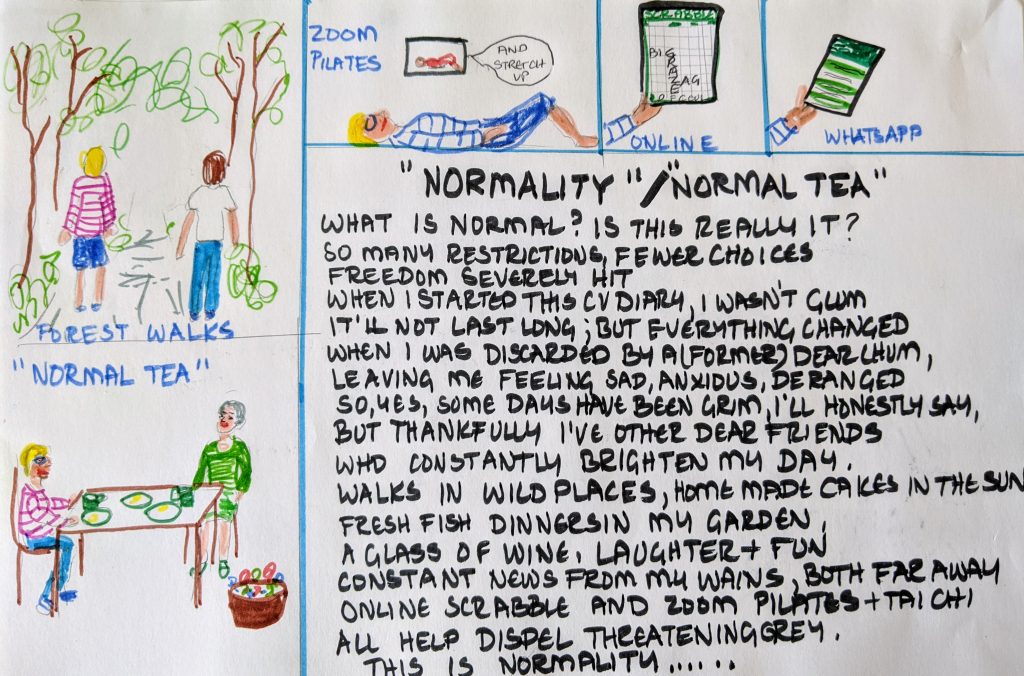 ZOOM
PILATES
AND
STRETCH
UP
SCRABBLE
ONLINE
WHATSAPP
FOREST WALKS
"NORMAL TEA"
"NORMALITY"/"NORMAL TEA"
WHAT IS NORMAL? IS THIS REALLY IT?
SO MANY RESTRICTIONS, FEWER CHOICES
FREEDOM SEVERELY HIT
WHEN I STARTED THIS CV DIARY, I WASN'T GLUM
IT'LL NOT LAST LONG; BUT EVERYTHING CHANGED
WHEN I WAS DISCARDED BY A (FORMER) DEAR CHUM,
LEAVING ME FEELING SAD, ANXIOUS, DERANGED
SO, YES, SOME DAYS HAVE BEEN GRIM, I'LL HONESTLY SAY,
BUT THANKFULLY I'VE OTHER DEAR FRIENDS
WHO CONSTANTLY BRIGHTEN MY DAY.
WALKS IN WILD PLACES, HOME MADE CAKES IN THE SUN
FRESH FISH DINNERS IN MY GARDEN,
A GLASS OF WINE, LAUGHTER + FUN
CONSTANT NEWS FROM MY WAINS, BOTH FAR AWAY
ONLINE SCRABBLE AND ZOOM PILATES + TAI CHI
ALL HELP DISPEL THREATENING GREY.
THIS IS NORMALITY......